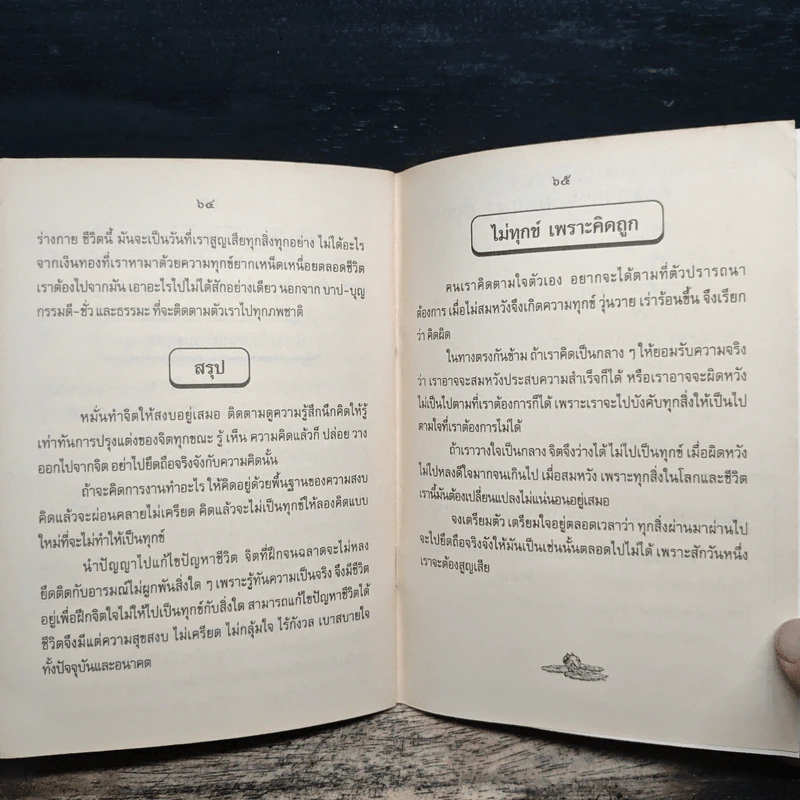 ๖๔
ร่างกาย ชีวิตนี้ มันจะเป็นวันที่เราสูญเสียทุกสิ่งทุกอย่าง ไม่ได้อะไร
จากเงินทองที่เราหามาด้วยความทุกข์ยากเหน็ดเหนื่อยตลอดชีวิต
เราต้องไปจากมัน เอาอะไรไปไม่ได้สักอย่างเดียว นอกจาก บาป-บุญ
กรรมดี-ชั่ว และธรรมะ ที่จะติดตามตัวเราไปทุกภพชาติ
สรุป
หมั่นทำจิตให้สงบอยู่เสมอ ติดตามดูความรู้สึกนึกคิดให้รู้
เท่าทันการปรุงแต่งของจิตทุกขณะ รู้ เห็น ความคิดแล้วก็ ปล่อย วาง
ออกไปจากจิต อย่าไปยึดถือจริงจังกับความคิดนั้น
ถ้าจะคิดการงานทำอะไร ให้คิดอยู่ด้วยพื้นฐานของความสงบ
คิดแล้วจะผ่อนคลายไม่เครียด คิดแล้วจะไม่เป็นทุกข์ให้ลองคิดแบบ
ใหม่ที่จะไม่ทำให้เป็นทุกข์
นำปัญญาไปแก้ไขปัญหาชีวิต จิตที่ฝึกจนฉลาดจะไม่หลง
ยึดติดกับอารมณ์ไม่ผูกพันสิ่งใด ๆ เพราะรู้ทันความเป็นจริง จึงมีชีวิต
อยู่เพื่อฝึกจิตใจไม่ให้ไปเป็นทุกข์กับสิ่งใด สามารถแก้ไขปัญหาชีวิตได้
ชีวิตจึงมีแต่ความสุขสงบ ไม่เครียด ไม่กลุ้มใจ ไร้กังวล เบาสบายใจ
ทั้งปัจจุบันและอนาคต
๖๕
ไม่ทุกข์ เพราะคิดถูก
คนเราคิดตามใจตัวเอง อยากจะได้ตามที่ตัวปรารถนา
ต้องการ เมื่อไม่สมหวังจึงเกิดความทุกข์ วุ่นวาย เร่าร้อนขึ้น จึงเรียก
ว่า คิดผิด
ในทางตรงกันข้าม ถ้าเราคิดเป็นกลาง ๆ ให้ยอมรับความจริง
ว่า เราอาจจะสมหวังประสบความสำเร็จก็ได้ หรือเราอาจจะผิดหวัง
ไม่เป็นไปตามที่เราต้องการก็ได้ เพราะเราจะไปบังคับทุกสิ่งให้เป็นไป
ตามใจที่เราต้องการไม่ได้
ถ้าเราวางใจเป็นกลาง จิตจึงว่างได้ ไม่ไปเป็นทุกข์ เมื่อผิดหวัง
ไม่ไปหลงดีใจมากจนเกินไป เมื่อสมหวัง เพราะทุกสิ่งในโลกและชีวิต
เรานี้มันต้องเปลี่ยนแปลงไม่แน่นอนอยู่เสมอ
จงเตรียมตัว เตรียมใจอยู่ตลอดเวลาว่า ทุกสิ่งผ่านมาผ่านไป
จะไปยึดถือจริงจังให้มันเป็นเช่นนั้นตลอดไปไม่ได้ เพราะสักวันหนึ่ง
เราจะต้องสูญเสีย